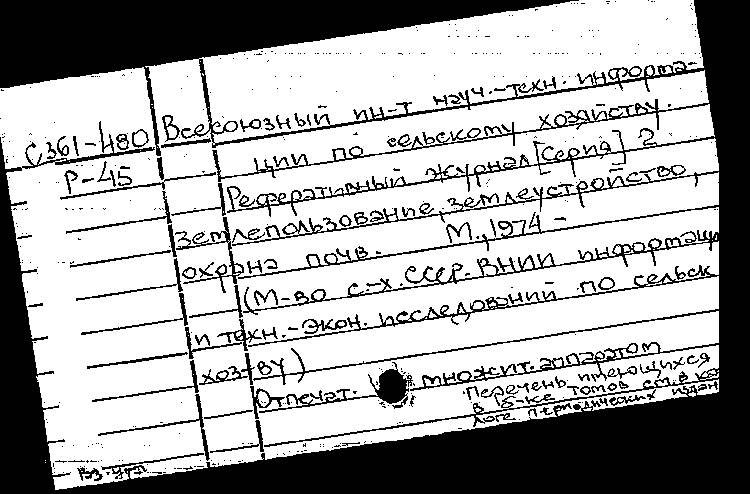 С361-480 Всесоюзный ин-т науч.-техн. информа-
Р-45 ции по сельскому хозяйству.
Реферативный журнал [Серия] 2
Землепользование, землеустройство,
охрана почв. М., 1974 -
(М-во с.-х. СССР. ВНИИ информации
и техн.-экон. исследований по сельск
хоз-ву)
Отпечат. множит. аппаратом
Перечень имеющихся
в б-ке томов см. в ка
логе периодических издан